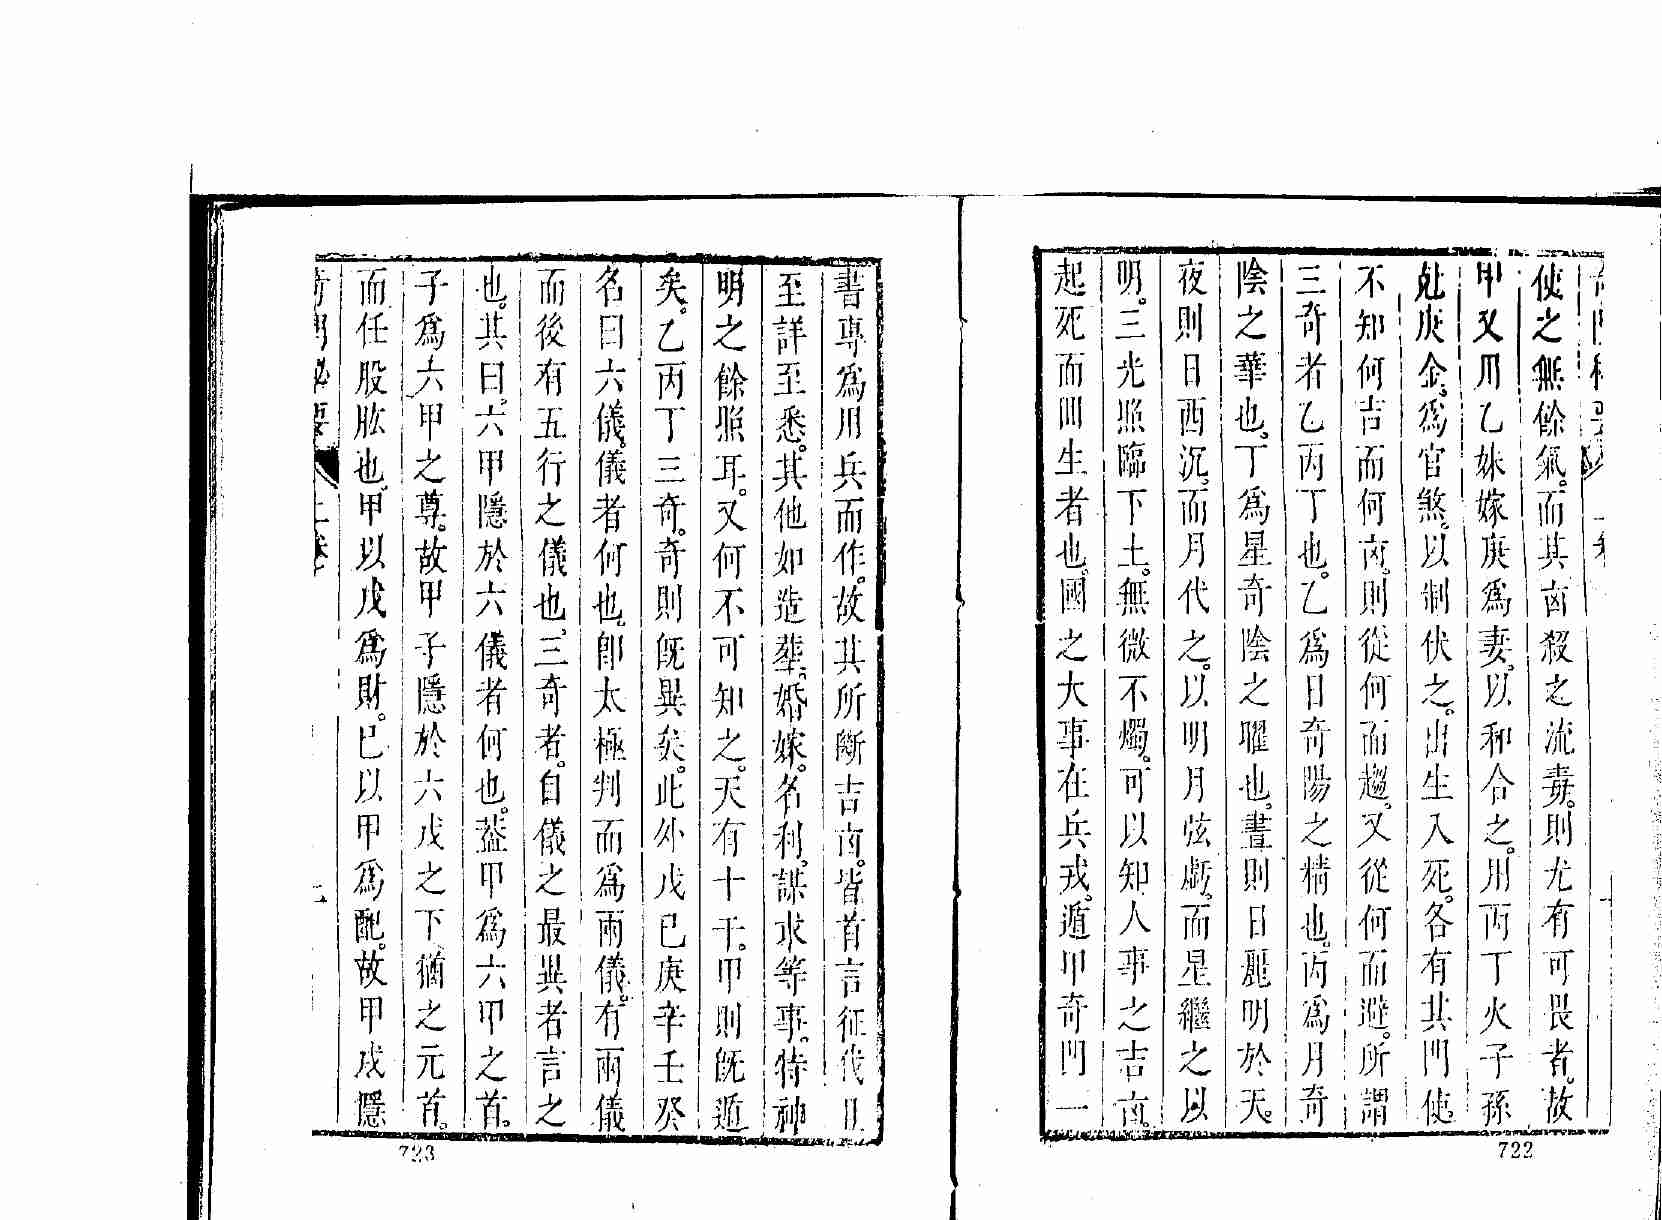 使之無餘氣。而其凶殺之流毒。則尤有可畏者。故
甲又用乙妹嫁庚爲妻。以和合之。用丙丁火子孫
尅庚金。爲官煞。以制伏之。出生入死。各有其門使
不知何吉而何凶。則從何而趨。又從何而避。所謂
三奇者乙丙丁也。乙爲日奇陽之精也。丙爲月奇
陰之華也。丁爲星奇陰之曜也。晝則日麗明於天。
夜則日西沉。而月代之。以明月弦虧。而星繼之以
明。三光照臨下土。無微不燭。可以知人事之吉凶。
起死而回生者也。國之大事在兵戎。遁甲奇門一
722
書專爲用兵而作。故其所斷吉凶。皆首言征伐且
至詳至悉。其他如造葬。婚嫁。名利。謀求等事。特神
明之餘照耳。又何不可知之。天有十干。甲則既遁
矣。乙丙丁三奇。奇則既異矣。此外戊已庚辛壬癸
名曰六儀。儀者何也。卽太極判而爲兩儀。有兩儀
而後有五行之儀也。三奇者。自儀之最異者言之
也。其曰。六甲隱於六儀者何也。葢甲爲六甲之首。
子爲六甲之尊。故甲子隱於六戊之下。猶之元首。
而任股肱也。甲以戊爲財。已以甲爲配。故甲戌隱
奇門秘要 上卷
723